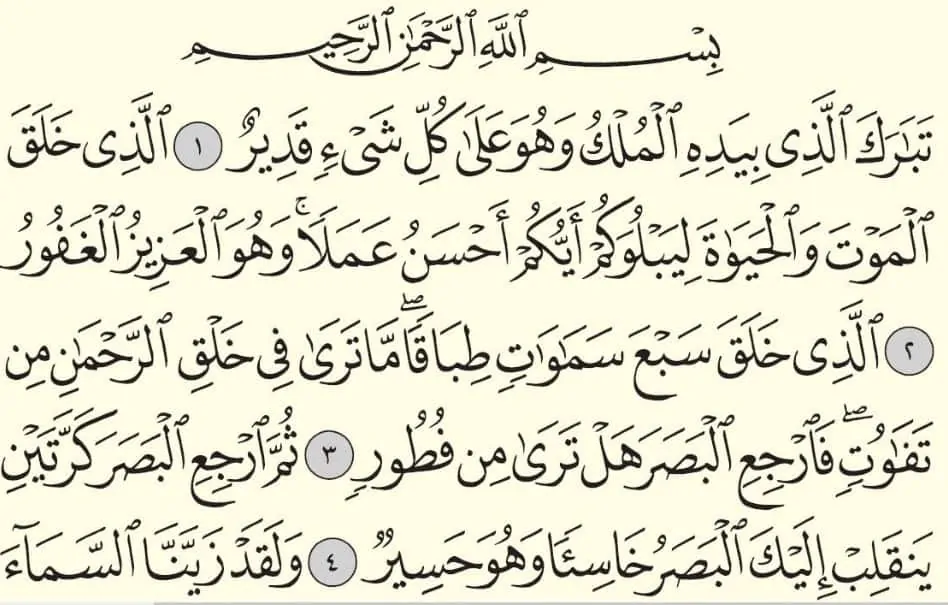 بِسْمِ ٱللَّهِ ٱلرَّحْمَٰنِ ٱلرَّحِيمِ
تَبَٰرَكَ ٱلَّذِى بِيَدِهِ ٱلْمُلْكُ وَهُوَ عَلَىٰ كُلِّ شَىْءٍ قَدِيرٌ ١ ٱلَّذِى خَلَقَ
ٱلْمَوْتَ وَٱلْحَيَوٰةَ لِيَبْلُوَكُمْ أَيُّكُمْ أَحْسَنُ عَمَلًا ۚ وَهُوَ ٱلْعَزِيزُ ٱلْغَفُورُ
٢ ٱلَّذِى خَلَقَ سَبْعَ سَمَٰوَٰتٍ طِبَاقًا ۖ مَّا تَرَىٰ فِى خَلْقِ ٱلرَّحْمَٰنِ مِن
تَفَٰوُتٍ ۖ فَٱرْجِعِ ٱلْبَصَرَ هَلْ تَرَىٰ مِن فُطُورٍ ٣ ثُمَّ ٱرْجِعِ ٱلْبَصَرَ كَرَّتَيْنِ
يَنقَلِبْ إِلَيْكَ ٱلْبَصَرُ خَاسِئًا وَهُوَ حَسِيرٌ ٤ وَلَقَدْ زَيَّنَّا ٱلسَّمَآءَ